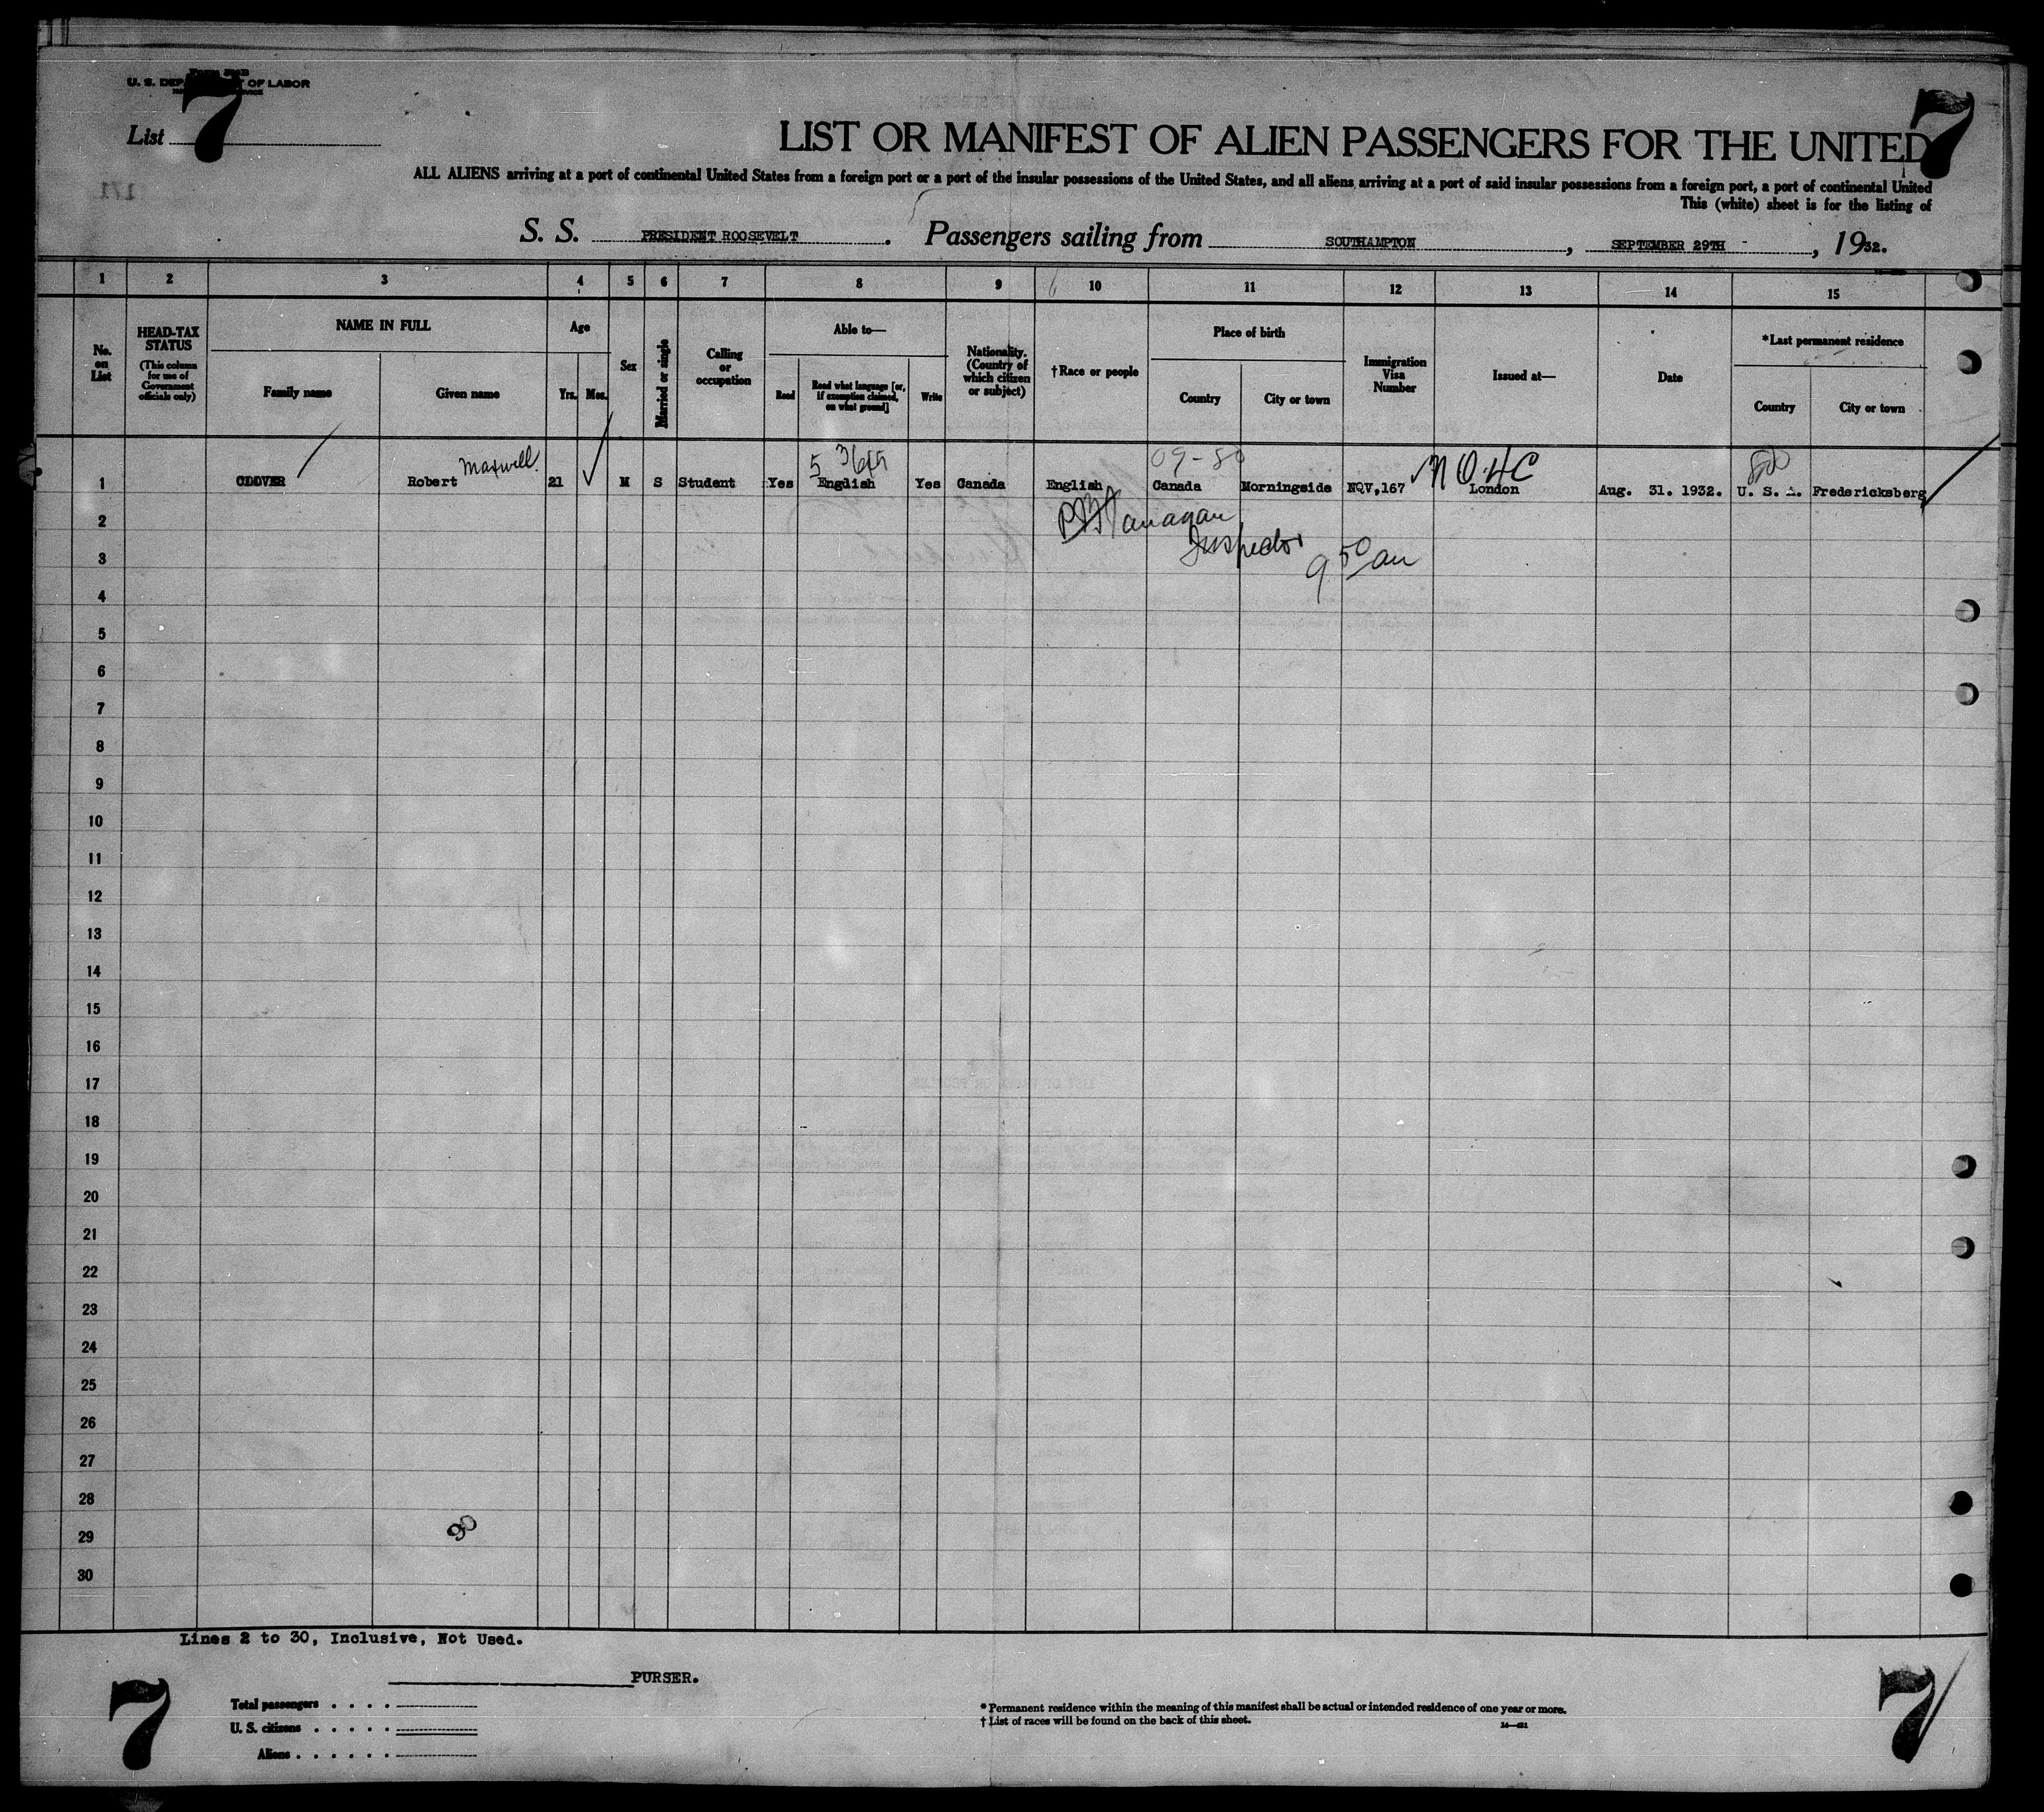 U. S. DEPARTMENT OF LABOR
List 7
7
LIST OR MANIFEST OF ALIEN PASSENGERS FOR THE UNITED
ALL ALIENS arriving at a port of continental United States from a foreign port or a port of the insular possessions of the United States, and all aliens arriving at a port of said insular possessions from a foreign port, a port of continental United
This (white) sheet is for the listing of
S. S. PRESIDENT ROOSEVELT. Passengers sailing from SOUTHAMPTON, SEPTEMBER 29TH, 1932.
1 2 3 4 5 6 7 8 9 10 11 12 13 14 15
No. on List
HEAD-TAX STATUS
(This column for use of Government officials only)
NAME IN FULL
Family name
Given name
Age
Yrs.
Mos.
Sex
Married or single
Calling or occupation
Able to—
Read
Read what language [or, if exemption claimed, on what ground]
Write
Nationality. (Country of which citizen or subject)
†Race or people
Place of birth
Country
City or town
Immigration Visa Number
Issued at—
Date
*Last permanent residence
Country
City or town
Maxwell.
09-80
NO 4C
1 Robert 21 M S Student Yes English Yes Canada English Canada Morningside NQV,167 London Aug. 31. 1932. U. S. A. Fredericksberg
2
Inspector
3
9 50 am
4
5
6
7
8
9
10
11
12
13
14
15
16
17
18
19
20
21
22
23
24
25
26
27
28
29
90
30
Lines 2 to 30, Inclusive, Not Used.
PURSER.
7
Total passengers
U. S. citizens
Aliens
* Permanent residence within the meaning of this manifest shall be actual or intended residence of one year or more.
† List of races will be found on the back of this sheet.
7